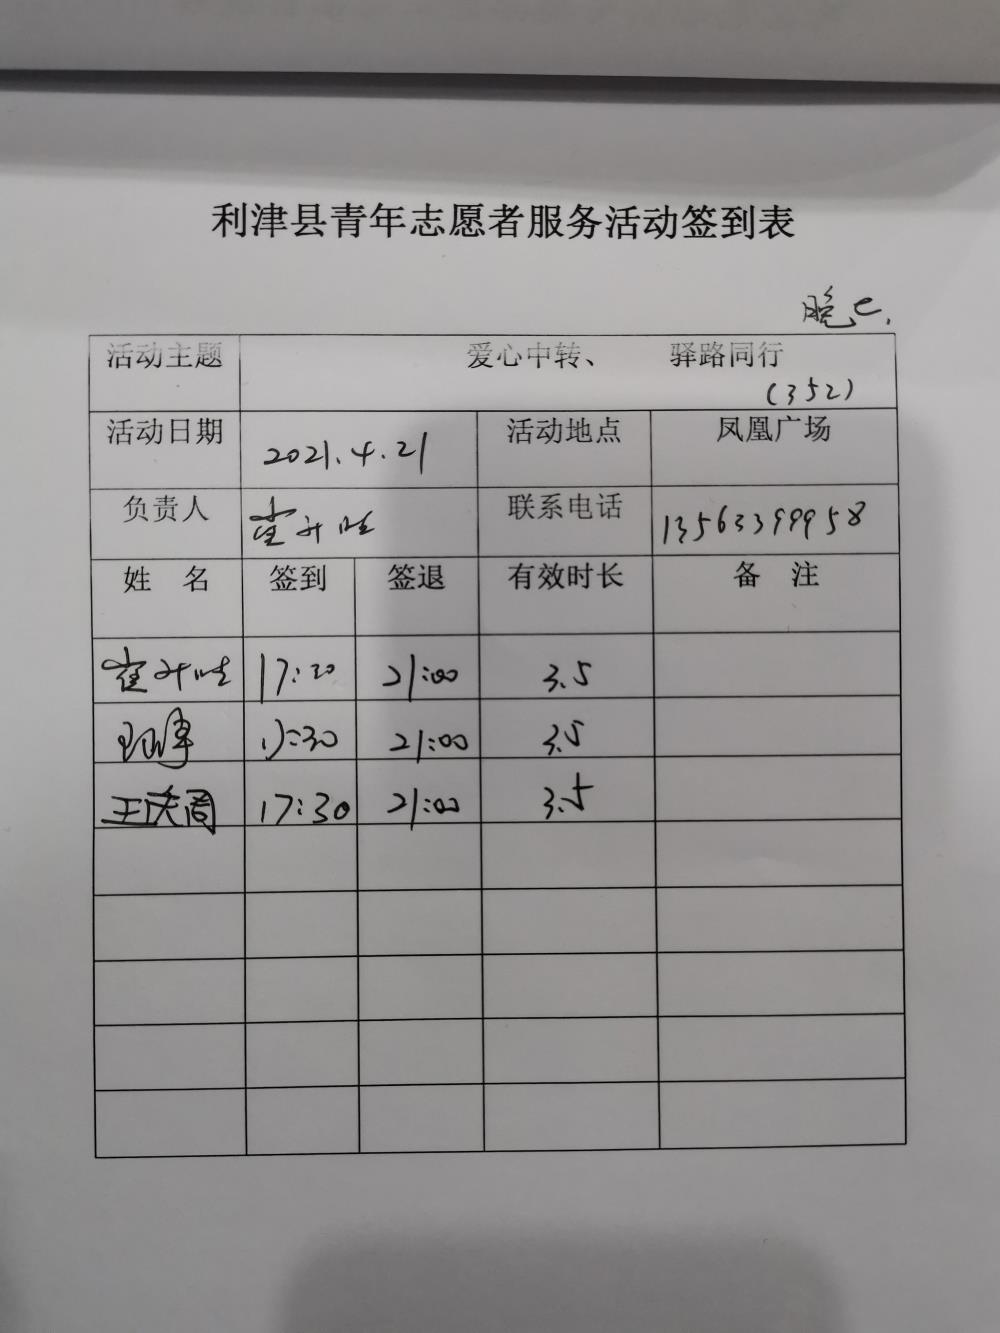 利津县青年志愿者服务活动签到表
晚
活动主题 爱心中转、 驿路同行
(352)
活动日期 2021.4.21 活动地点 凤凰广场
负责人 联系电话 13563399958
姓 名 签到 签退 有效时长 备 注
崔 17:30 21:00 3.5
17:30 21:00 3.5
王庆周 17:30 21:00 3.5